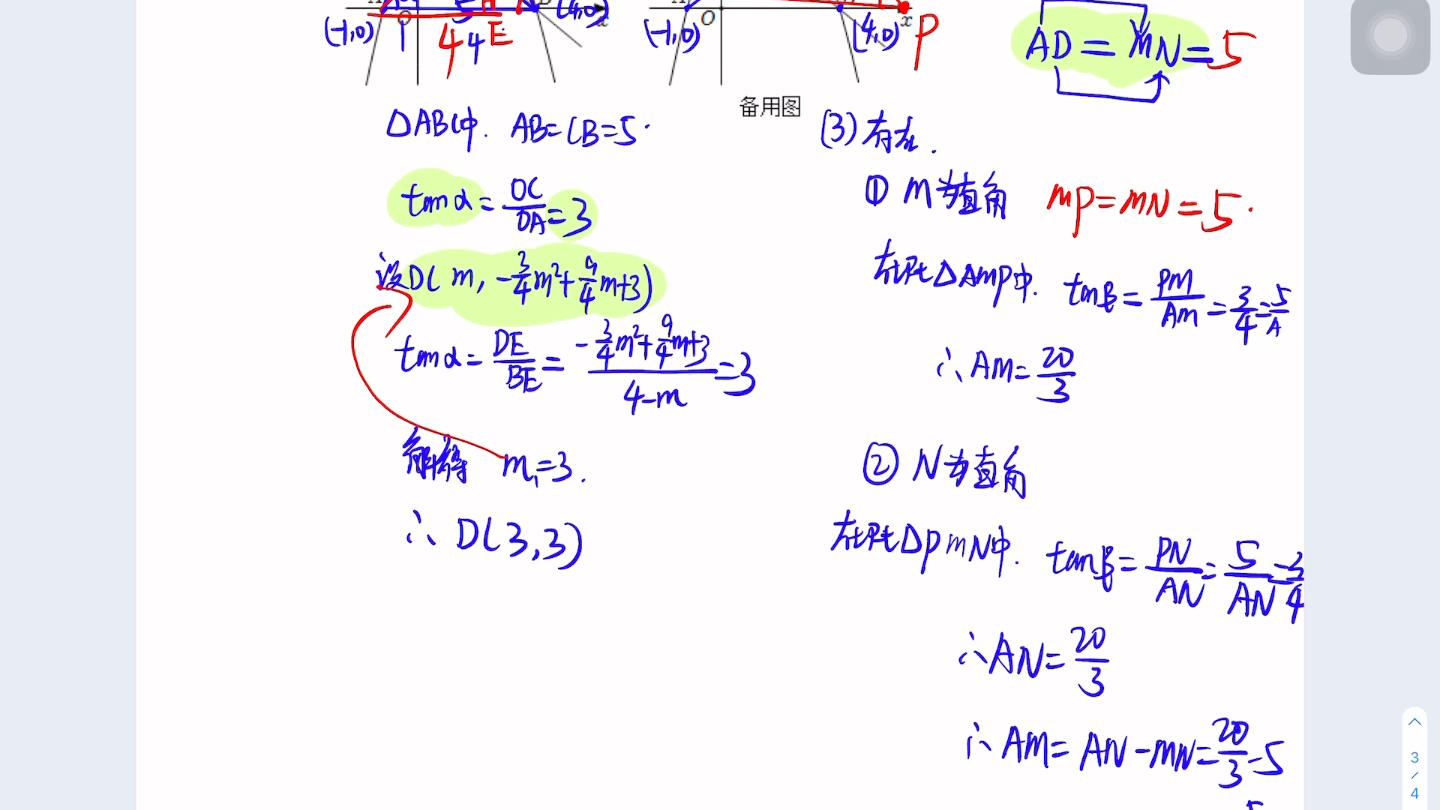 (-1,0) 4 4 E (4,0) x
(-1,0) O (4,0) x P
备用图
AD = MN = 5
△ABC中. AB=CB=5.
tanα = OC/OA = 3
设D(m, -3/4m²+9/4m+3)
tanα = DE/BE = (-3/4m²+9/4m+3)/(4-m) = 3
解得 m₁=3.
∴ D(3,3)
(3)存在.
① M为直角 MP=MN=5.
在Rt△AMP中. tanβ = PM/AM = 3/4 = 5/A
∴ AM = 20/3
② N为直角
在Rt△PMN中. tanβ = PN/AN = 5/AN = 3/4
∴ AN = 20/3
∴ AM = AN - MN = 20/3 - 5
3
/
4